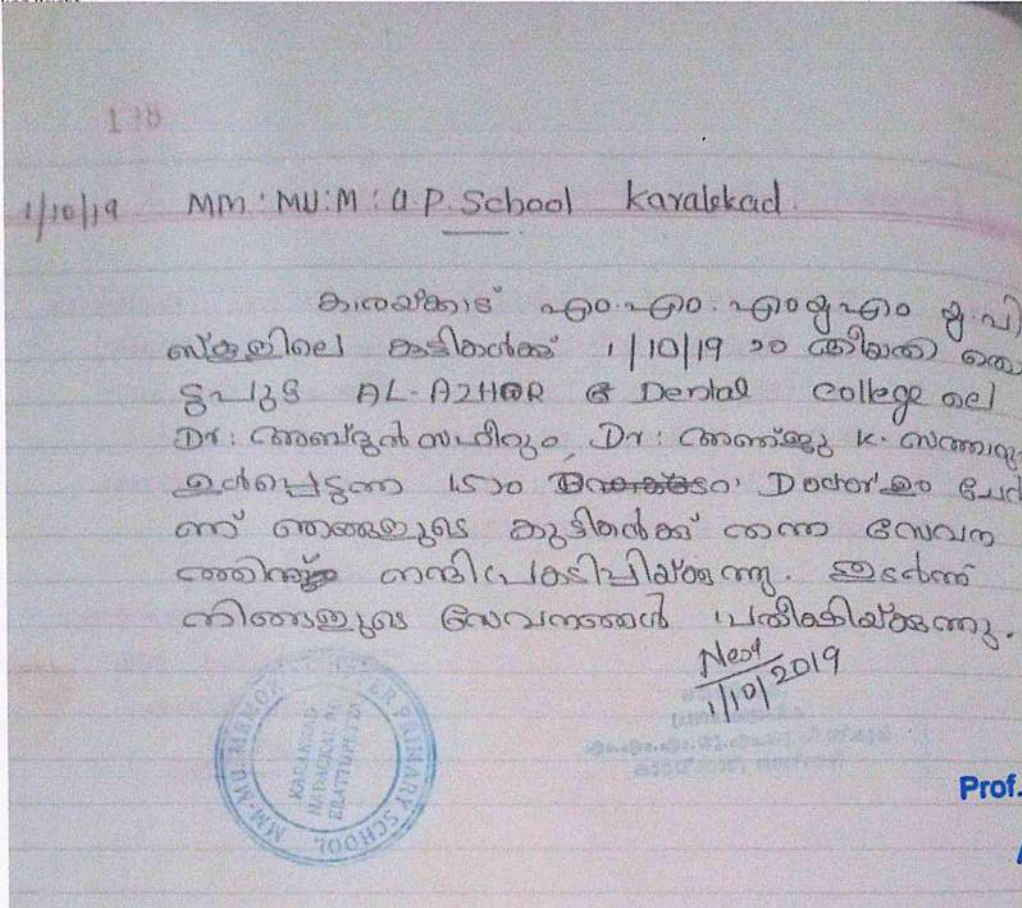 1/10/19 MM: MU: M: U.P. School Karakkad.
കാരയ്ക്കാട് എം.എം. എം യു എം യു.പി
സ്കൂളിലെ കുട്ടികൾക്ക് 1/10/19 ൽ തൊ
ടുപുഴ AL-AZHAR Dental College ലെ
Dr: അബ്ദുൽ Dr: അഞ്ജു K.
ഉൾപ്പെടുന്ന 15 Doctor ചേർ
ന്ന് ഞങ്ങളുടെ കുട്ടികൾക്ക് തന്ന സേവന
ത്തിന് നന്ദി പ്രകടിപ്പിയ്ക്കുന്നു. തുടർന്ന്
നിങ്ങളുടെ സേവനങ്ങൾ പ്രതീക്ഷിയ്ക്കുന്നു.
1/10/2019
PRIMARY SCHOOL
MM.MU
KARAKKAD
NADACKAL PO
ERATTUPETTA
Prof.